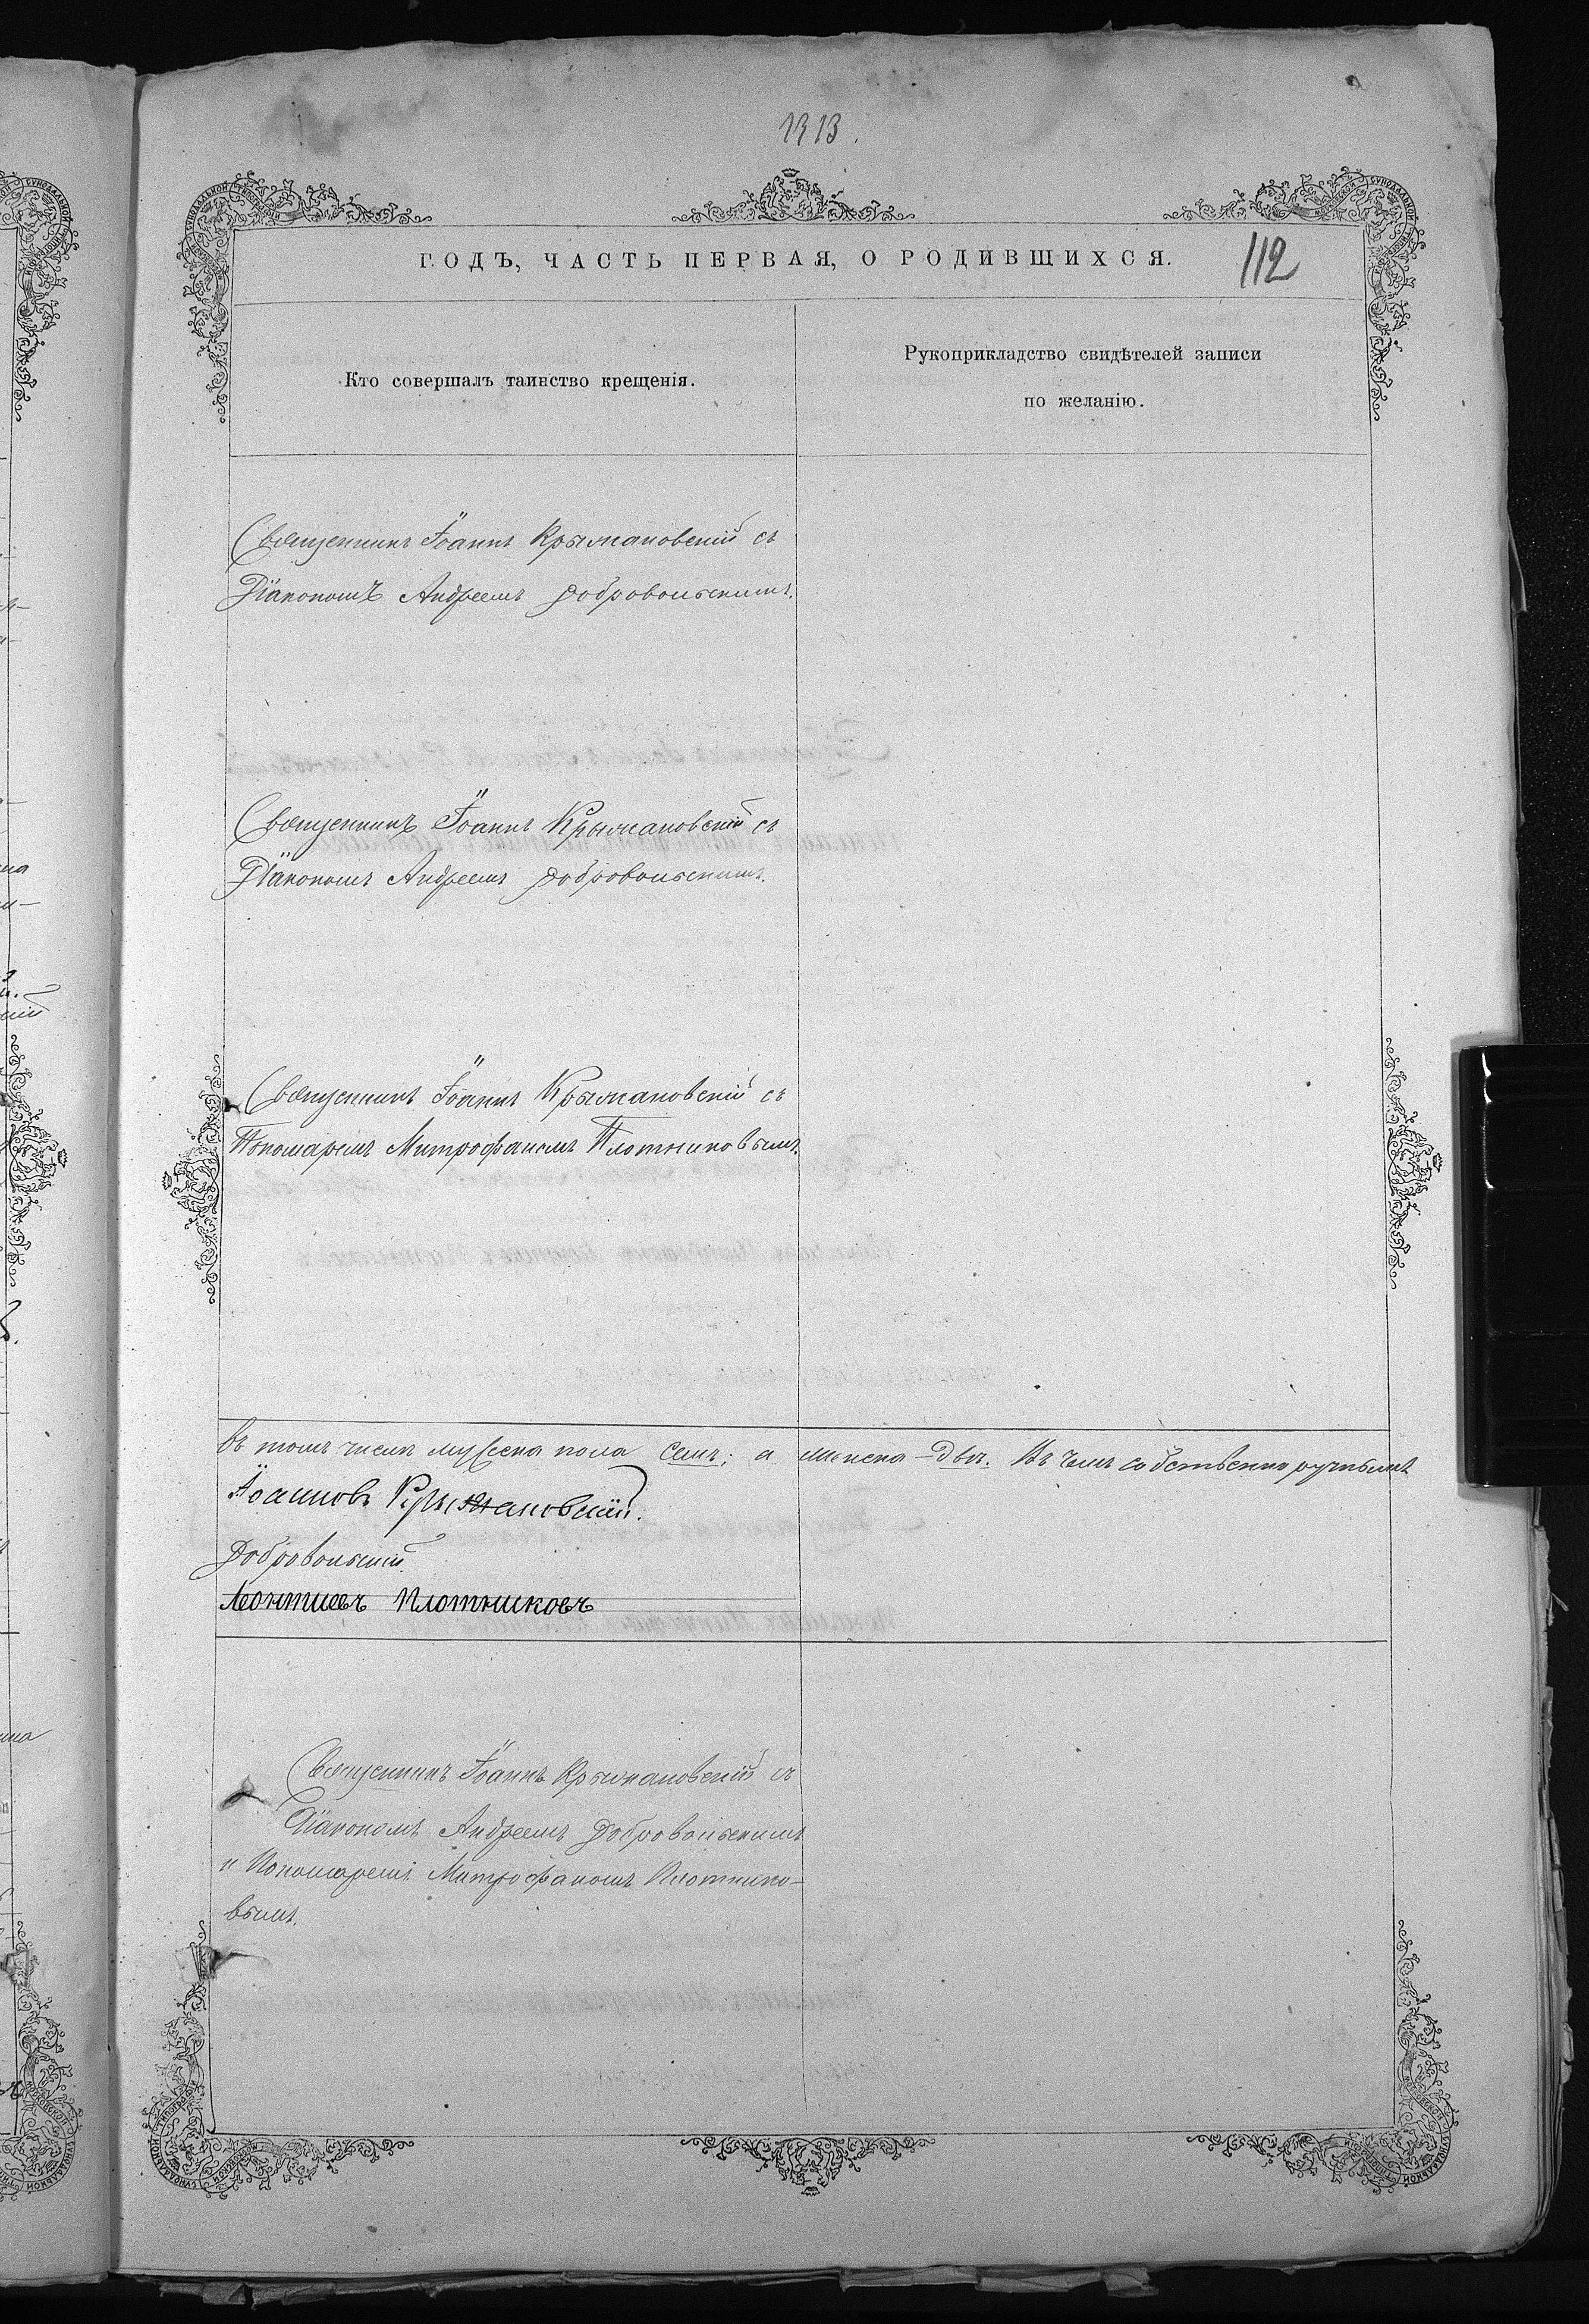 1913.
ГОДЪ, ЧАСТЬ ПЕРВАЯ, О РОДИВШИХСЯ.
112
Кто совершалъ таинство крещенія.
Рукоприкладство свидѣтелей записи
по желанію.
Священникъ Іоаннъ Крыжановскій съ
Діакономъ Андреемъ Добровольскимъ.
Священникъ Іоаннъ Крыжановскій съ
Діакономъ Андреемъ Добровольскимъ.
Священникъ Іоаннъ Крыжановскій съ
Пономаремъ Митрофаномъ Плотниковымъ.
въ томъ числѣ мужеска пола семь; а женска – двѣ. Въ чемъ собственноручнымъ
Іоанновъ Крыжановскій.
Добровольскій.
Леонтиевъ Плотниковъ
Священникъ Іоаннъ Крыжановскій съ
Діакономъ Андреемъ Добровольскимъ
и Пономаремъ Митрофаномъ Плотнико-
вымъ.